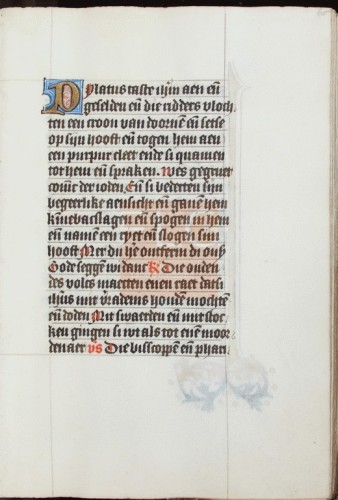 Pylatus taste ihm aen en
geselden en die ridders vloch
ten een croon van doornē en sette
op sijn hooft en togen hem aen
een purpur cleet ende si quamen
tot hem en spraken. Wes gegruet
conīc der ioden. En si bedecten sijn
begeerlike aensicht en gauen hem
kīnebacslagen en spogen in hem
en namen een ryet en slogen sijn
hooft Mer du he ontferm di onß
Gode seggē wi danc R Die ouden
des volcs maecten enen raet dat si
ihūs mit vradems houdē mochtē
en dodē Mit swaerden en mit stoc
ken gingen si wt als tot enē moor
denaer vs Die bisscoppē en phari